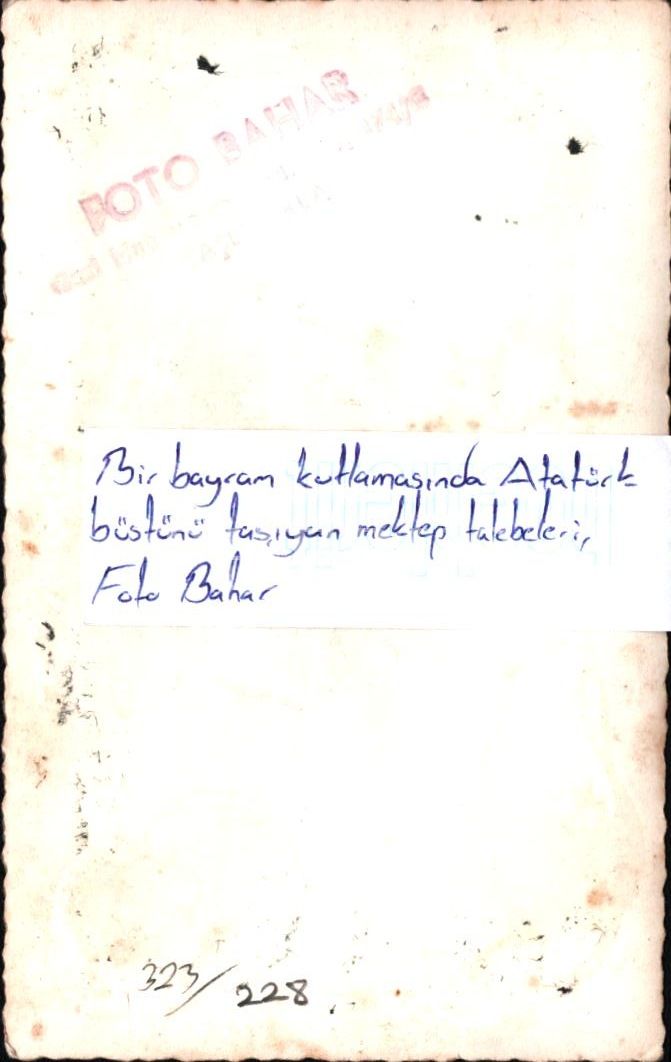 FOTO BAHAR
Bir bayram kutlamasında Atatürk
büstünü taşıyan mektep talebeleri,
Foto Bahar
323/228